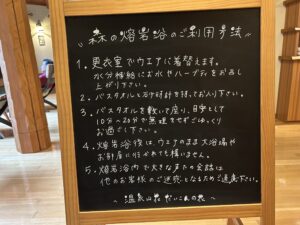 〃森の熔岩浴のご利用方法〃
1. 更衣室でウエアに着替えます。
水分補給にお水やハーブティをお召し
上がり下さい。
2. バスタオルと砂時計を持ってお入り下さい。
3. バスタオルを敷いて座り、目安として
10分〜20分で無理をせずごゆっくり
お過ごし下さい。
4. 熔岩浴後は、ウエアのまま大浴場や
お部屋に行かれても構いません。
5. 熔岩浴内で大きな声での会話は
他のお客様のご迷惑となるためご遠慮下さい。
〜温泉山荘だいこんの花〜